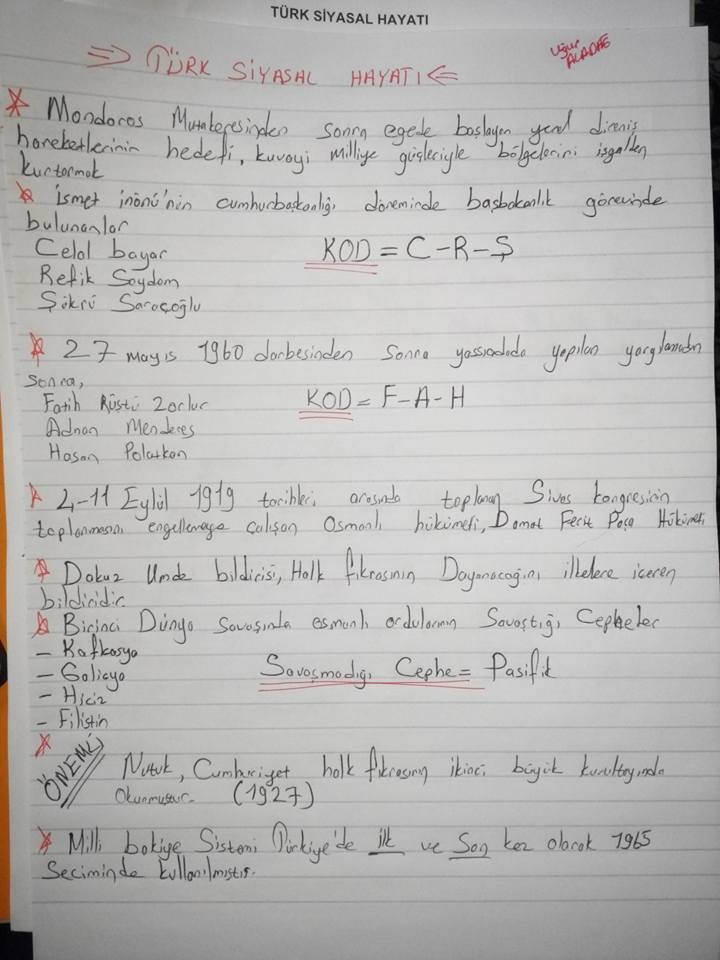 TÜRK SİYASAL HAYATI
Uğur ALADAĞ
=> TÜRK SİYASAL HAYATI <=
* Mondoros Mutakeresinden sonra egede başlayan yerel direniş
hareketlerinin hedefi, kuvayi milliye güçleriyle bölgelerini işgalden
kurtarmak
* İsmet inönü'nin cumhurbaşkanlığı döneminde başbakanlık görevinde
bulunanlar
Celal bayar KOD = C-R-Ş
Refik Saydam
Şükrü Saraçoğlu
* 27 mayıs 1960 darbesinden sonra yassıadada yapılan yargılamadan
sonra,
Fatih Rüştü Zorlur KOD = F-A-H
Adnan Menderes
Hasan Polatkan
* 4-11 Eylül 1919 tarihleri arasında toplanan Sivas kongresinin
toplanmasını engellemeye çalışan Osmanlı hükümeti, Damat Ferit Paşa Hükümeti
* Dokuz Umde bildirisi, Halk fıkrasının Dayanacağını ilkelere içeren
bildiridir.
* Birinci Dünya savaşında osmanlı ordularının Savaştığı Cepheler
- Kafkasya
- Galiçya Savaşmadığı Cephe = Pasifik
- Hicaz
- Filistin
*
ÖNEMLİ Nutuk, Cumhuriyet halk fıkrasının ikinci büyük kurultayında
Okunmuştur. (1927)
* Milli bakiye Sistemi Türkiye'de ilk ve Son kez olarak 1965
Seciminde kullanılmıştır.